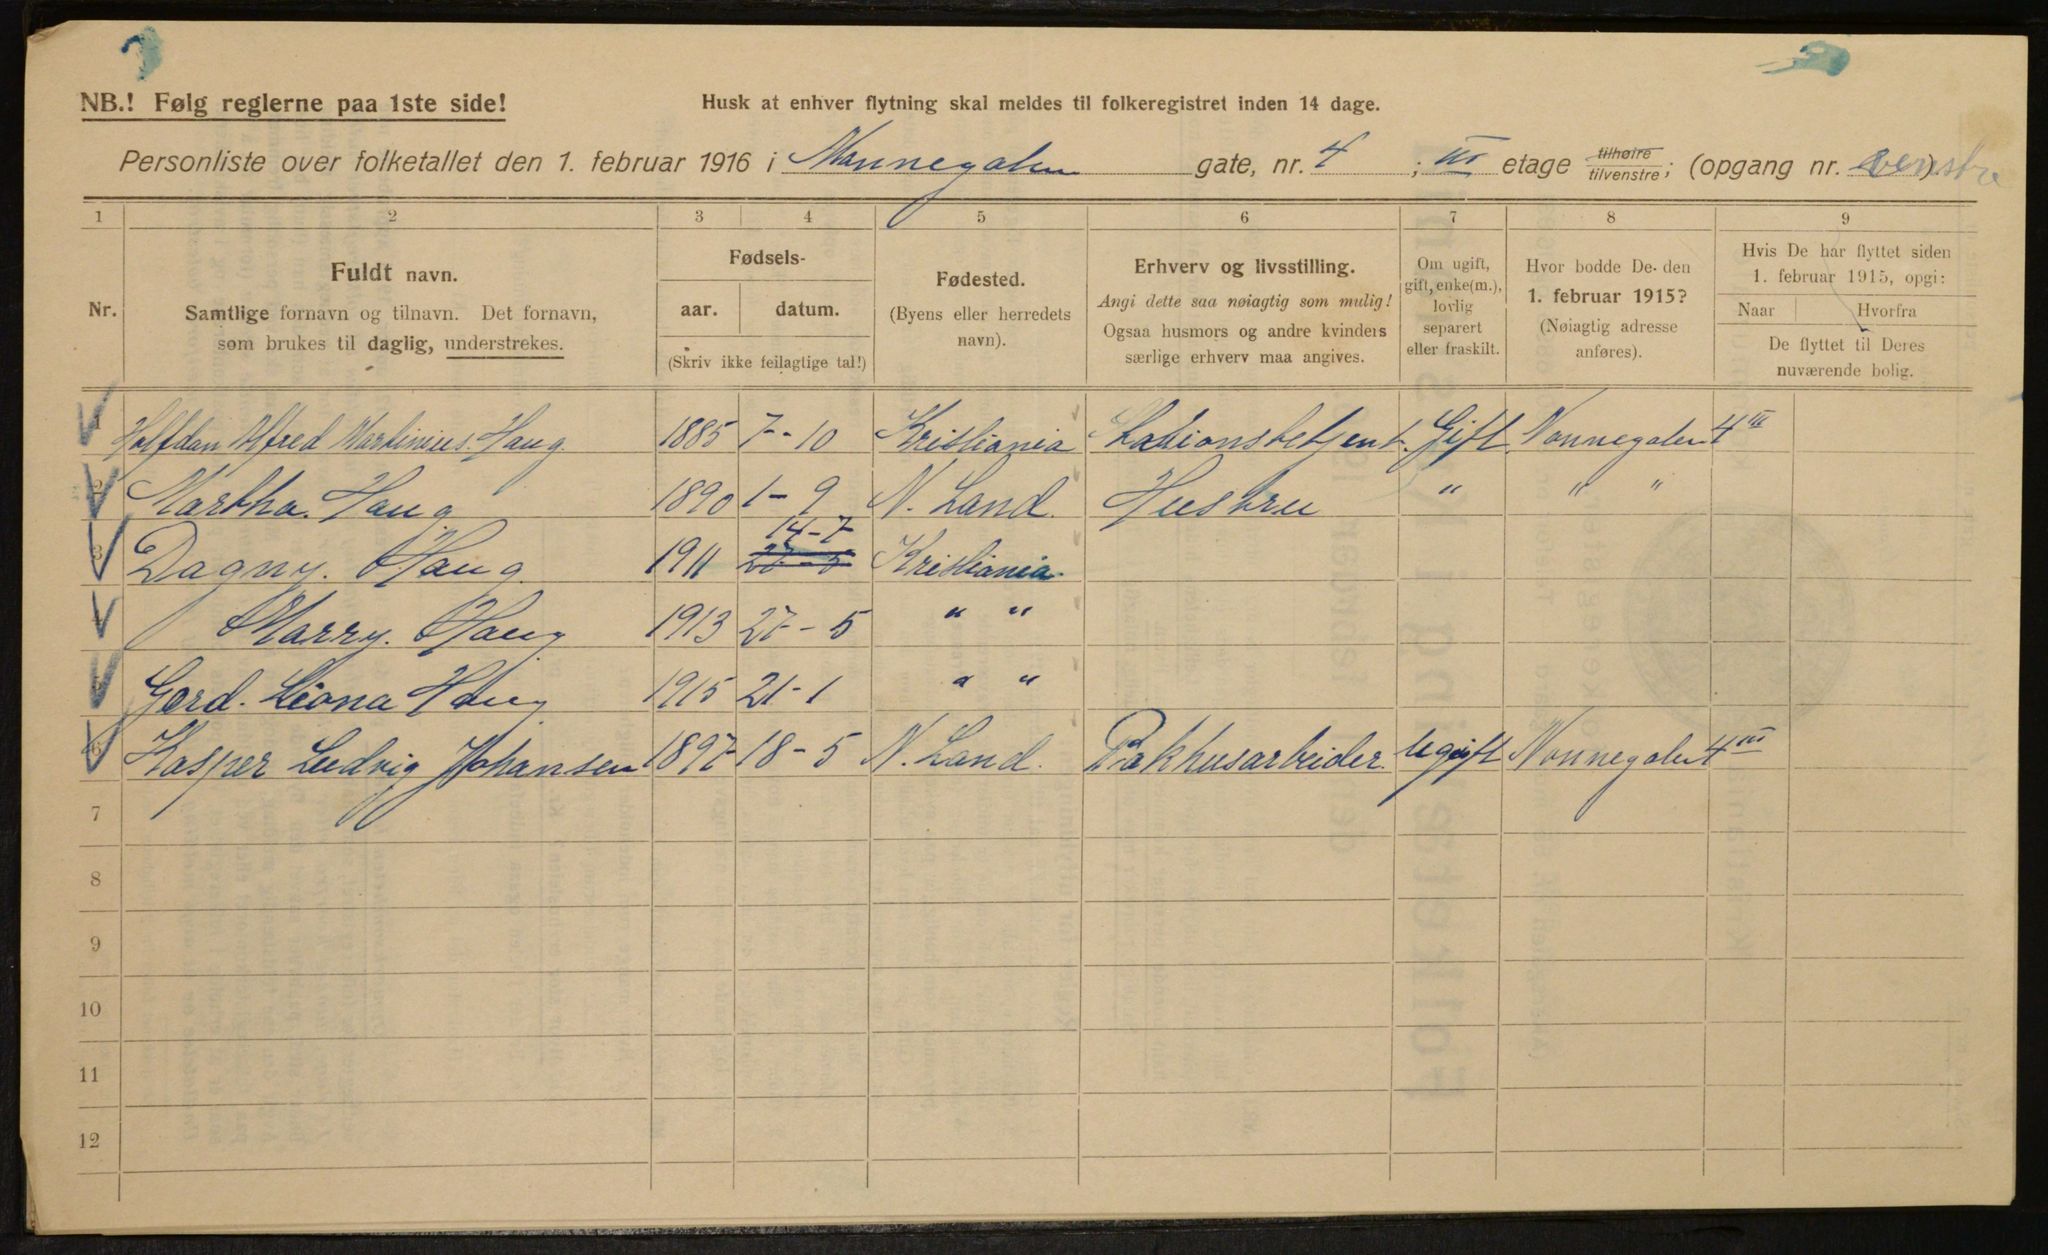 NB.! Følg reglerne paa 1ste side!
Husk at enhver flytning skal meldes til folkeregistret inden 14 dage.
Personliste over folketallet den 1. februar 1916 i Nonnegaten gate, nr. 4 ; III etage tilhøire tilvenstre; (opgang nr. venstre)
1 2 3 4 5 6 7 8 9
Nr.
Fuldt navn.
Samtlige fornavn og tilnavn. Det fornavn,
som brukes til daglig, understrekes.
Fødsels-
aar. datum.
(Skriv ikke feilagtige tal!)
Fødested.
(Byens eller herredets
navn).
Erhverv og livsstilling.
Angi dette saa nøiagtig som mulig!
Ogsaa husmors og andre kvinders
særlige erhverv maa angives.
Om ugift,
gift, enke(m.),
lovlig
separert
eller fraskilt.
Hvor bodde De den
1. februar 1915?
(Nøiagtig adresse
anføres).
Hvis De har flyttet siden
1. februar 1915, opgi:
Naar Hvorfra
De flyttet til Deres
nuværende bolig.
1 Halfdan Alfred Martinius. Haug. 1885 7-10 Kristiania Stationsbetjent. Gift. Nonnegaten 4 III
2 Martha. Haug 1890 1-9 N. Land. Hustru " " "
14-7
3 Dagny. Haug. 1911 27-5 Kristiania.
4 Marry. Haug 1913 27-5 " "
5 Gerd. Leona Haug 1915 21-1 " "
6 Kasper Ludvig Johansen 1897 18-5 N. Land. Pakhusarbeider. Ugift Nonnegaten 4 III
7
8
9
10
11
12